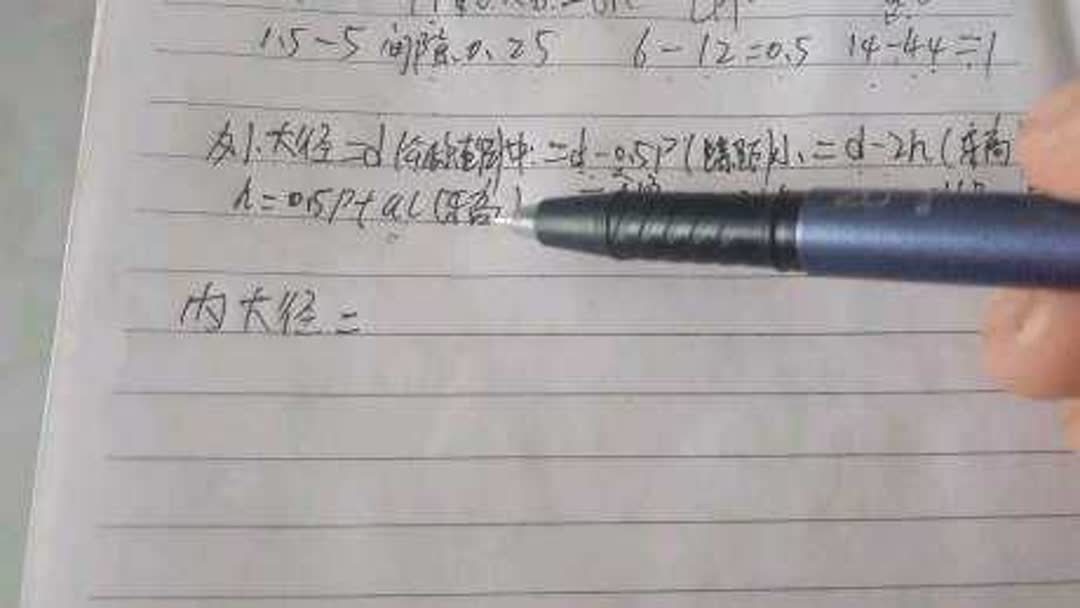 1.5-5 间隙0.25 6-12=0.5 14-44=1
外大径=d(公称直径)中=d-0.5P(螺距)小=d-2h(牙高
h=0.5P+ac(牙高)
内大径=